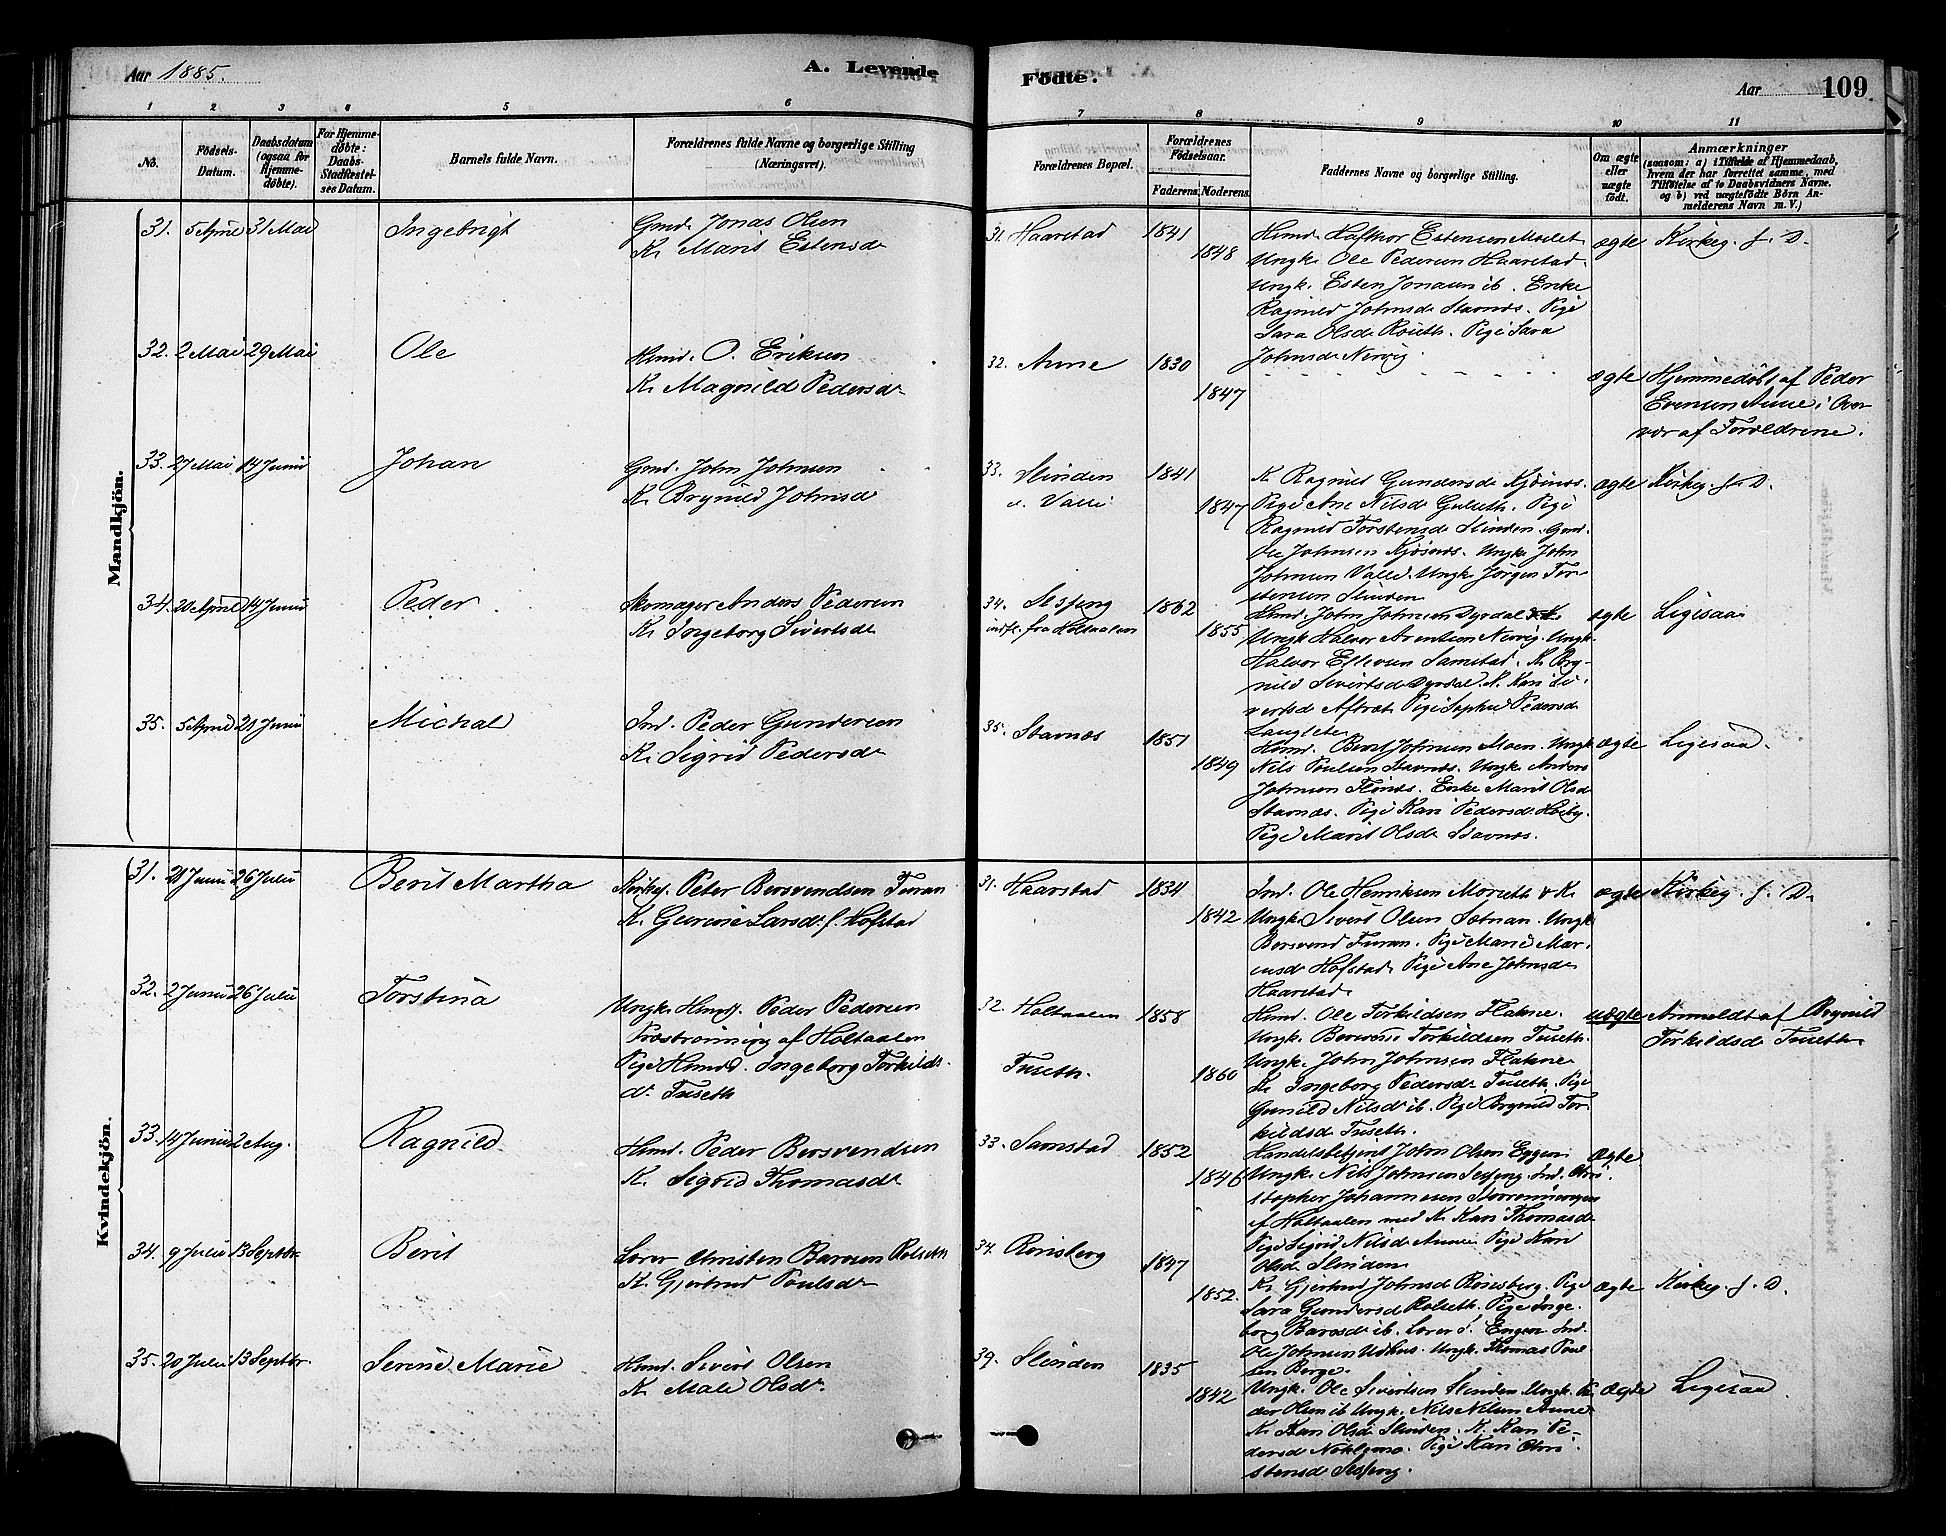 Aar 1885.
A. Levende
Fødte.
Aar
109
1 2 3 4 5 6 7 8 9 10 11
No.
Fødsels-
Datum.
Daabsdatum
(ogsaa for
Hjemme-
døbte).
For Hjemme-
døbte:
Daabs-
Stadfæstel-
ses Datum.
Barnets fulde Navn.
Forældrenes fulde Navne og borgerlige Stilling
(Næringsvei).
Forældrenes Bopæl.
Forældrenes
Fødselsaar.
Faderens. Moderens.
Faddernes Navne og borgerlige Stilling.
Om ægte
eller
uægte
født.
Anmærkninger
(saasom: a) i Tilfælde af Hjemmedaab,
hvem der har forrettet samme, med
Tilføielse af to Daabsvidners Navne,
og b) ved uægtefødte Børn An-
melderens Navn m. V.)
Mandkjøn.
31. 5 April 31 Mai Ingebrigt
Gmd. Jonas Olsen
K. Marit Estensdr
31. Haarstad 1841
1848
Hmd. Hafthor Estensen Moslet
Ungk. Ole Pedersen Haarstad
Ungk. Esten Jonasen ib. Enke
Ragnild Johnsdr Stavnes. Pige
Sara Olsdr Roseth. Pige Sara
Johnsdr Nervig.
ægte Kirkeg. f. D.
32. 2 Mai 29 Mai Ole
Hmd. O. Eriksen
K. Magnild Pedersdr
32. Aune 1830
1847
ægte Hjemmedøbt af Peder
Evensen Aune i Over
vær af Forældrene.
33. 27 Mai 14 Juni Johan
Gmd. John Johnsen
K. Brynild Johnsdr
33. Slinden
v. Valli
1841
1847
K. Ragnild Gundersdr Kjøsnes.
Pige Ane Nilsdr Gulseth. Pige
Ragnild Torstensdr Slinden. Gmd.
Ole Johnsen Kjøsnes. Ungk. John
Johnsen Valli. Ungk. Jørgen Tor-
stensen Slinden
ægte Kirkeg. f. D.
34. 20 April 14 Juni Peder
Skomager Anders Pedersen
K. Ingeborg Sivertsdr
34. Sesseng
indfl. fra Holtaalen
1862
1855
Hmd. John Johnsen Dyrdal & K.
Ungk. Halvor Arentsen Nervig. Ungk.
Halvor Ellevsen Samstad. K. Bry-
nild Sivertsdr Dyrdal. K. Kari Si-
vertsdr Aftret. Pige Sophie Pedersdr
Langleter
ægte Ligesaa
35. 5 April 21 Juni Michal
Ind. Peder Gundersen
K. Sigrid Pedersdr
35. Stavnes 1851
1849
Hmd. Berit Johnsen Moen. Ungk.
Nils Poulsen Stavnes. Ungk. Anders
Johnsen Flønes. Enke Marit Olsdr
Stavnæs. Pige Kari Pedersdr Høiby
Pige Marit Olsdr Stavnes.
ægte Ligesaa.
Kvindekjøn.
31. 21 Juni 26 Juli Berit Martha
Kirkes. Peter Bersvendsen Furan
K. Gurine Larsdr f. Hofstad
31. Haarstad 1834
1842
Ind. Ole Henriksen Morseth & K.
Ungk. Sivert Olsen Sætnan. Ungk.
Bersvend Furan. Pige Marie Mar-
ensdr Hofstad. Pige Ane Johnsdr
Haarstad.
ægte Kirkeg. f. D.
32. 2 Juni 26 Juli Torstina
Ungk. Hmd. Peder Pedersen
Præstrønning af Holtaalen
Pige Hmd. Ingeborg Torkilds-
dr. Tuseth
32. Holtaalen
Tuseth.
1858
1860
Hmd. Ole Torkildsen Flakne.
Ungk. Bersvend Torkildsen Tuseth
Ungk. John Johnsen Flakne
K. Ingeborg Pedersdr Tuseth. Pige
Gunild Nilsdr ib. Pige Brynild Tor-
kildsdr Tuseth.
uægte Anmeldt af Brynild
Torkildsdr Tuseth.
33. 14 Juni 2 Aug. Ragnild
Hmd. Peder Bersvendsen
K. Sigrid Thomasdr
33. Samstad 1852
1846
Handelsbetjent John Olsen Eggen.
Ungk. Nils Johnsen Sesseng. Ind. Chri-
stopher Johannesen
af Holtaalen med K. Kari Thomasdr
Pige Sigrid Nilsdr Aune. Pige Kari
Olsdr Slinden
ægte
34. 9 Juli 13 Septbr. Berit
Lærer Christen Barosen Rolseth
K. Gjertrud Poulsdr
34. Rønsberg
1847
1852.
K. Gjertrud Johnsdr Rønsberg. Pige
Sara Gundersdr Rolseth. Pige Inge-
borg Barosdr ib. Lærer S. Engen. Ind.
Ole Johnsen Udhus. Ungk. Thomas Poul-
sen Berge.
ægte Kirkeg. f. D.
35. 20 Juli 13 Septbr. Serine Marie
Hmd. Sivert Olsen
K. Mali Olsdr.
39. Slinden 1835
1842
Ungk. Ole Sivertsen Slinden. Ungk. Pe-
der Olsen ib. Ungk. Nils Nilsen Aune
K. Kari Olsdr Slinden. K. Kari Pe-
dersdr Neklemo. Pige Kari Chri-
stensdr Sesseng.
ægte Ligesaa.